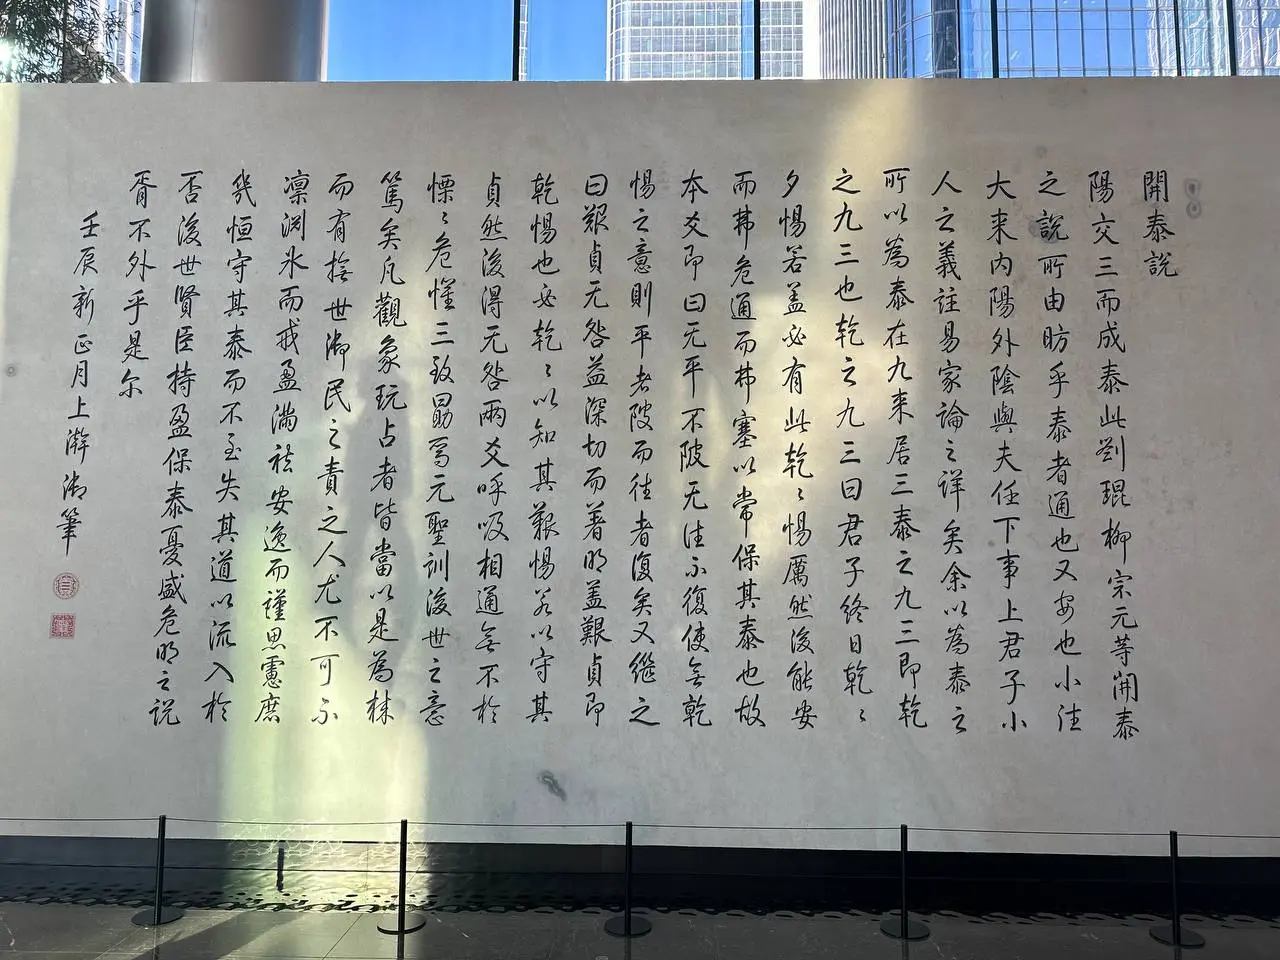 開泰說
陽交三而成泰此劉琨柳宗元等開泰
之說所由昉乎泰者通也又安也小往
大来内陽外陰與夫任下事上君子小
人之義註易家論之詳矣余以為泰之
所以為泰在九来居三泰之九三即乾
之九三也乾之九三曰君子終日乾〻
夕惕若盖必有此乾〻惕厲然後能安
而弗危通而弗塞以常保其泰也故
本爻即曰无平不陂无往不復使無乾
惕之意則平者陂而往者復矣又繼之
曰艱貞无咎益深切而著明盖艱貞即
乾惕也必乾〻以知其艱惕若以守其
貞然後得无咎兩爻呼吸相通無不於
慄〻危懼三致勗焉元聖訓後世之意
篤矣凡觀象玩占者皆當以是為棶
而有撫世御民之責之人尤不可不
凛淵氷而戒盈滿祛安逸而謹思慮庶
幾恒守其泰而不至失其道以流入於
否後世賢臣持盈保泰憂盛危明之說
胥不外乎是尔
壬辰新正月上澣御筆